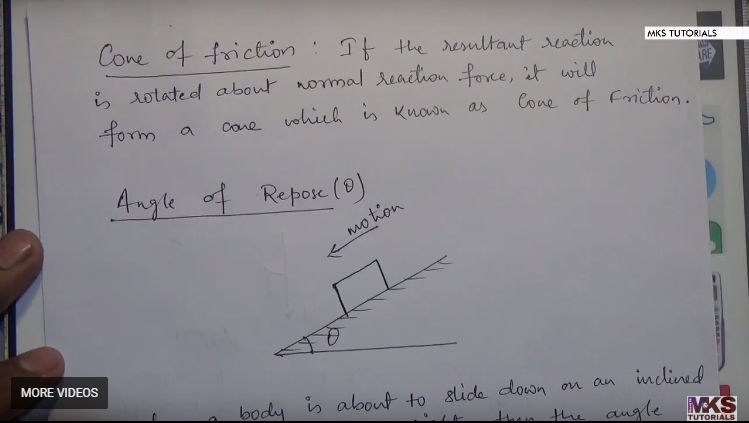 MKS TUTORIALS
Cone of friction : If the resultant reaction
is rotated about normal reaction force, it will
form a cone which is known as Cone of Friction.
Angle of Repose (θ)
motion
θ
MORE VIDEOS
a body is about to slide down on an inclined
then the angle
MKS
TUTORIALS